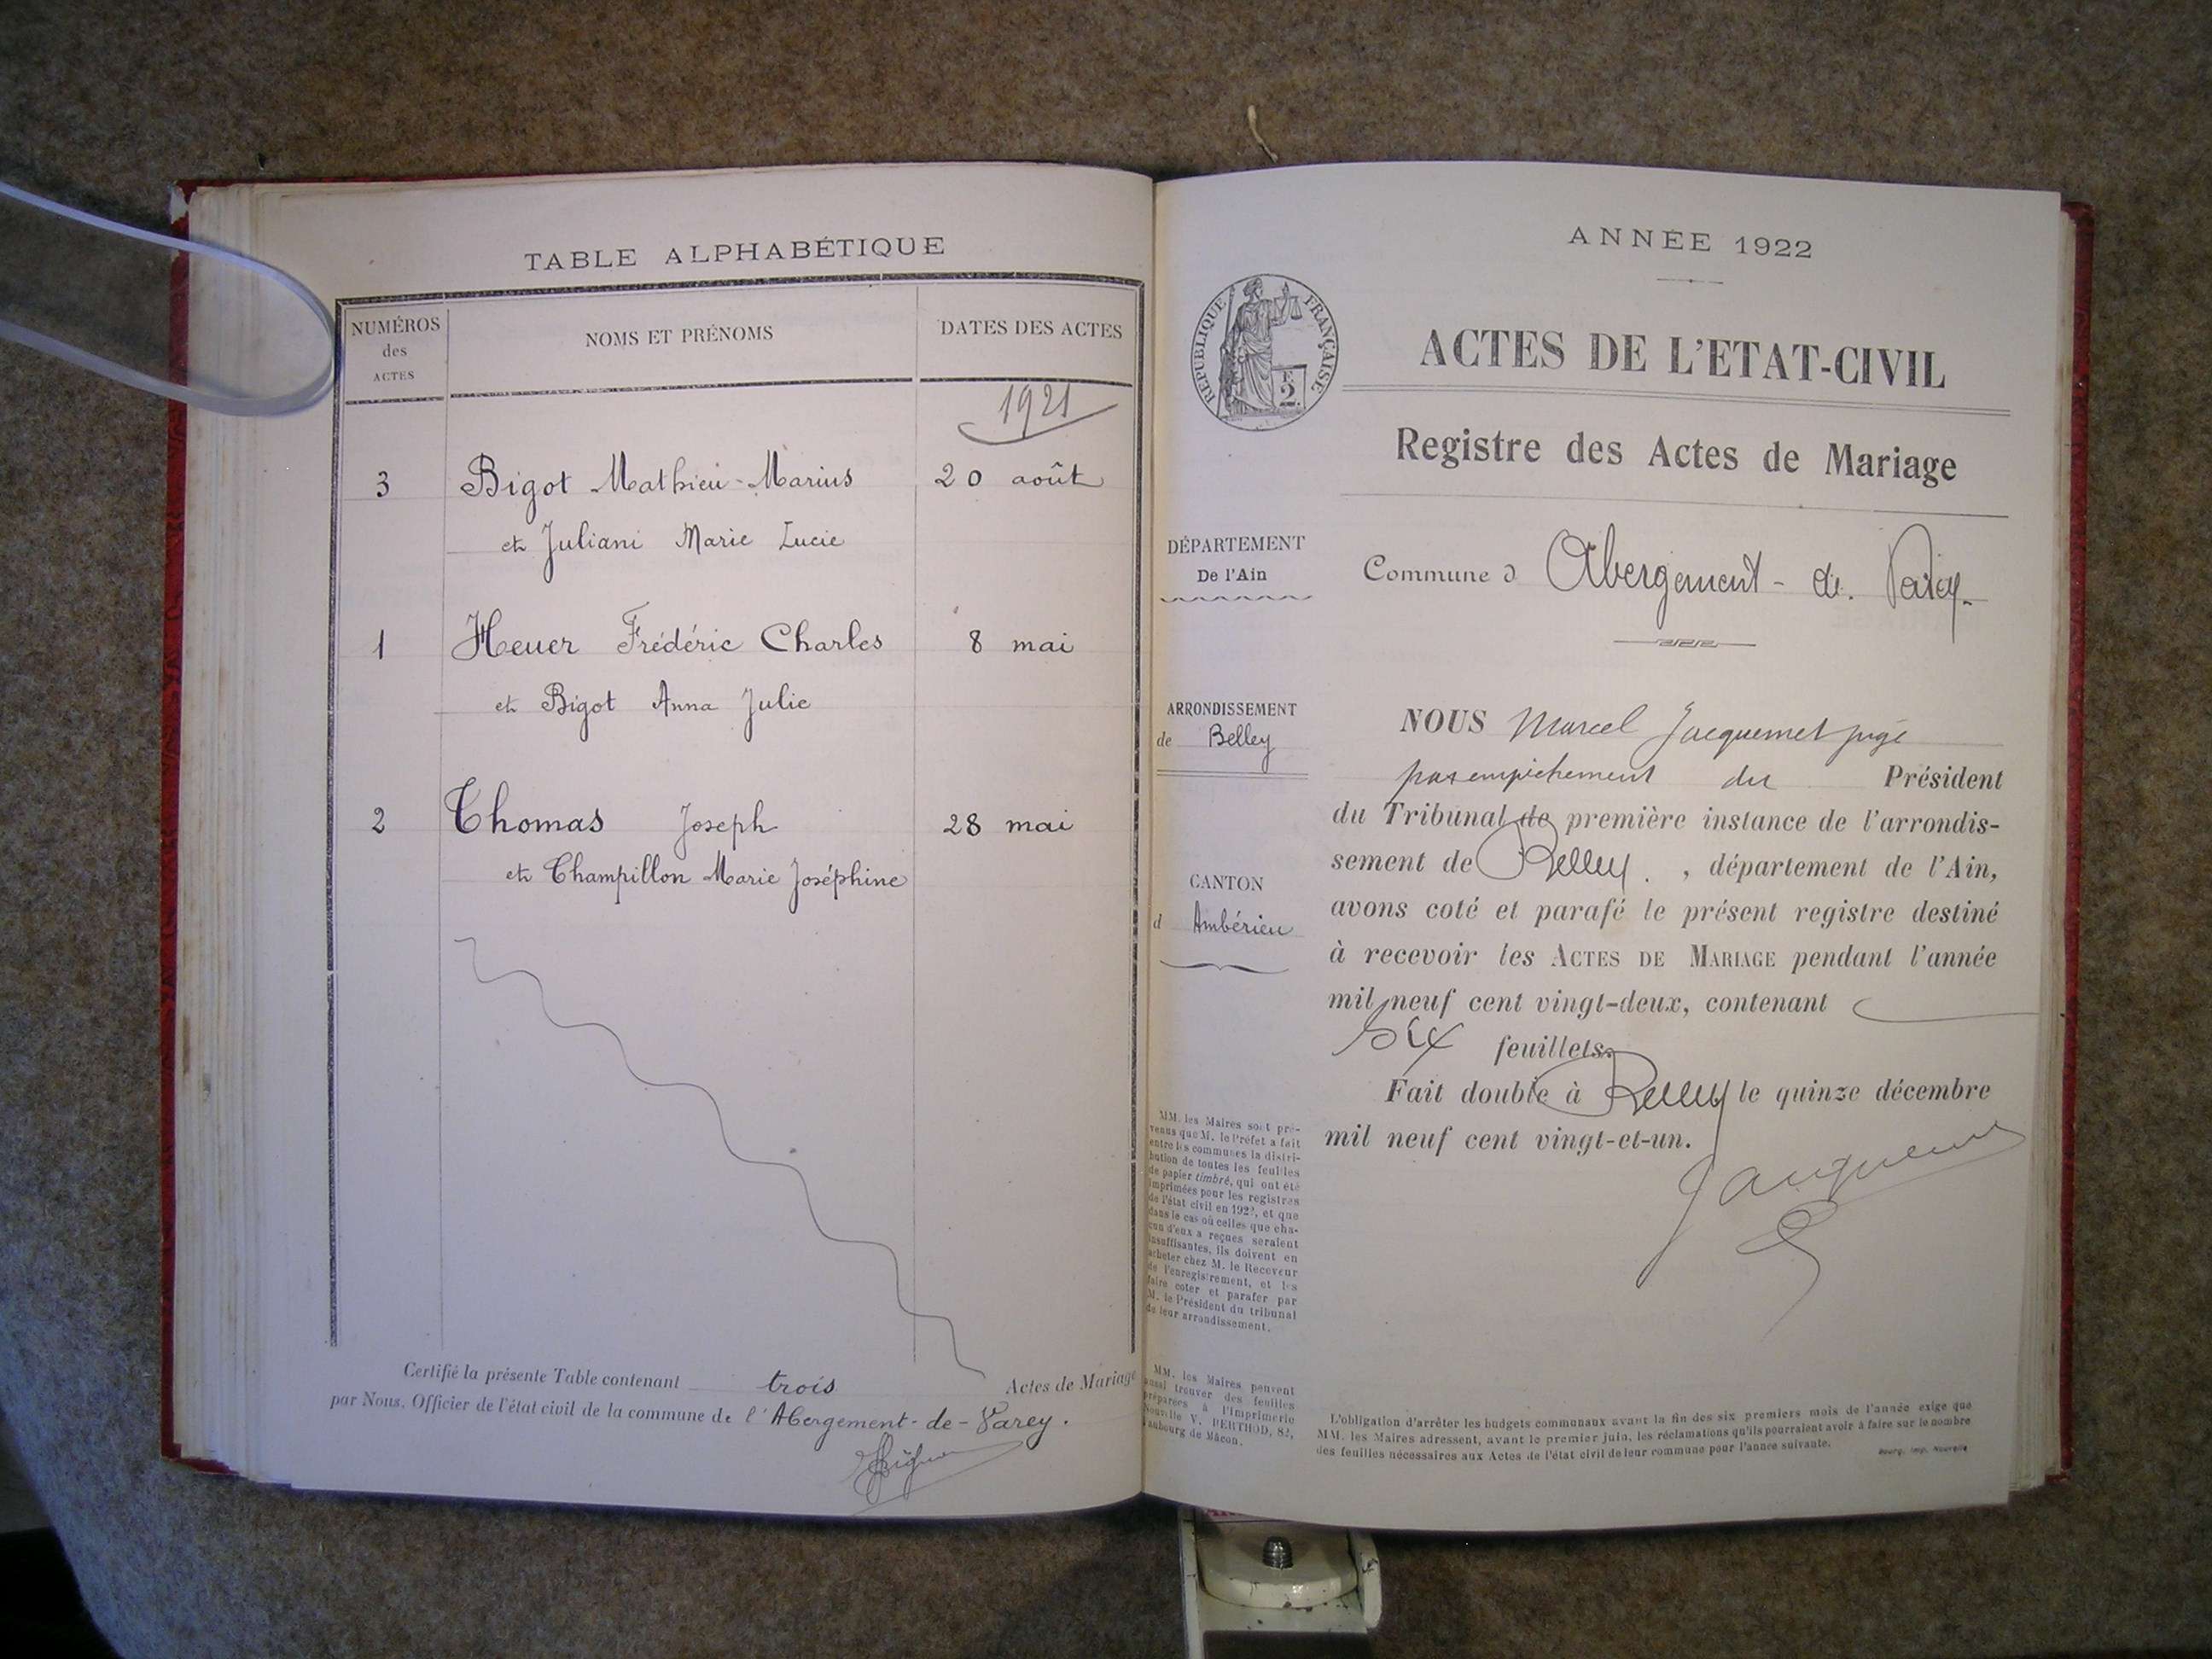 TABLE ALPHABÉTIQUE
NUMÉROS
des
ACTES
NOMS ET PRÉNOMS
DATES DES ACTES
1921
3 Bigot Mathieu-Marius 20 août
et Juliani Marie Lucie
1 Heuer Frédéric Charles 8 mai
et Bigot Anna Julie
2 Thomas Joseph 28 mai
et Champillon Marie Joséphine
Certifié la présente Table contenant trois Actes de Mariage
par Nous, Officier de l'état civil de la commune de l'Abergement-de-Varey.
ANNÉE 1922
RÉPUBLIQUE FRANÇAISE
2
ACTES DE L'ETAT-CIVIL
Registre des Actes de Mariage
DÉPARTEMENT
De l'Ain
Commune d Abergement-de-Varey
ARRONDISSEMENT
de Belley
CANTON
d Ambérieu
NOUS Marcel Jacquemet juge
par empêchement du Président
du Tribunal de première instance de l'arrondis-
sement de Belley, département de l'Ain,
avons coté et parafé le présent registre destiné
à recevoir les ACTES DE MARIAGE pendant l'année
mil neuf cent vingt-deux, contenant
six feuillets.
Fait double à Belley le quinze décembre
mil neuf cent vingt-et-un.
Jacquemet
MM. les Maires sont pré-
venus que M. le Préfet a fait
entre les communes la distri-
bution de toutes les feuilles
de papier timbré, qui ont été
imprimées pour les registres
de l'état civil en 1922, et que
dans le cas où celles que cha-
cun d'eux a reçues seraient
insuffisantes, ils doivent en
acheter chez M. le Receveur
de l'enregistrement, et les
faire coter et parafer par
M. le Président du tribunal
de leur arrondissement.
MM. les Maires peuvent
aussi trouver des feuilles
préparées à l'Imprimerie
Nouvelle V. BERTHOD, 82,
faubourg de Mâcon.
L'obligation d'arrêter les budgets communaux avant la fin des six premiers mois de l'année exige que
MM. les Maires adressent, avant le premier juin, les réclamations qu'ils pourraient avoir à faire sur le nombre
des feuilles nécessaires aux Actes de l'état civil de leur commune pour l'année suivante.
Bourg, Imp. Nouvelle